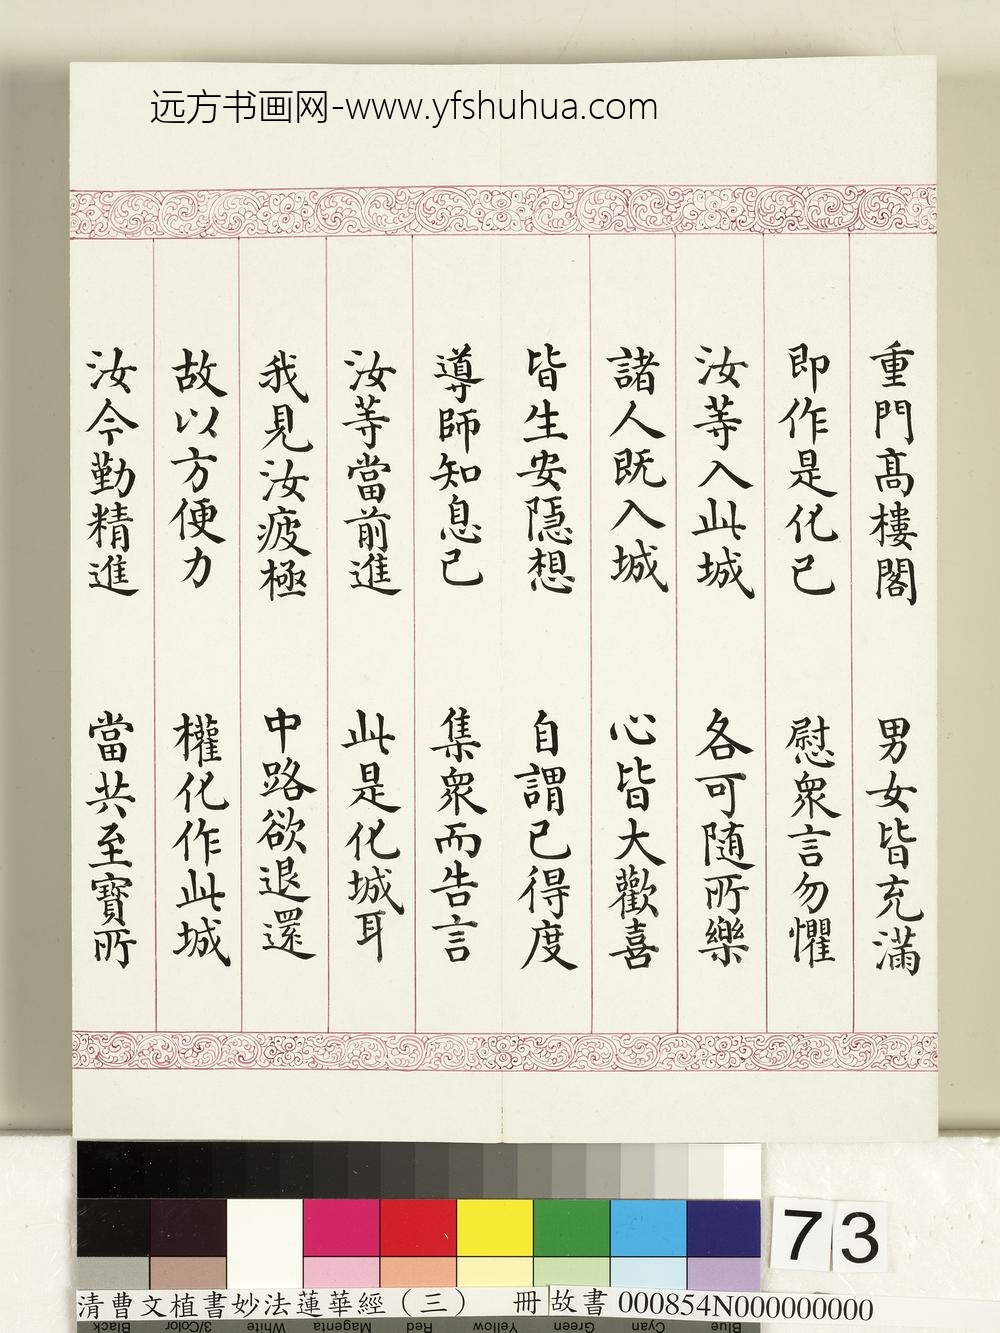 远方书画网-www.yfshuhua.com
重門髙樓閣 男女皆充滿
即作是化已 慰衆言勿懼
汝等入此城 各可隨所樂
諸人既入城 心皆大歡喜
皆生安隱想 自謂已得度
導師知息已 集衆而告言
汝等當前進 此是化城耳
我見汝疲極 中路欲退還
故以方便力 權化作此城
汝今勤精進 當共至寶所
73
清曹文植書妙法蓮華經（三） 冊 故書 000854N000000000
Black 3/Color White Magenta Red Yellow Green Cyan Blue